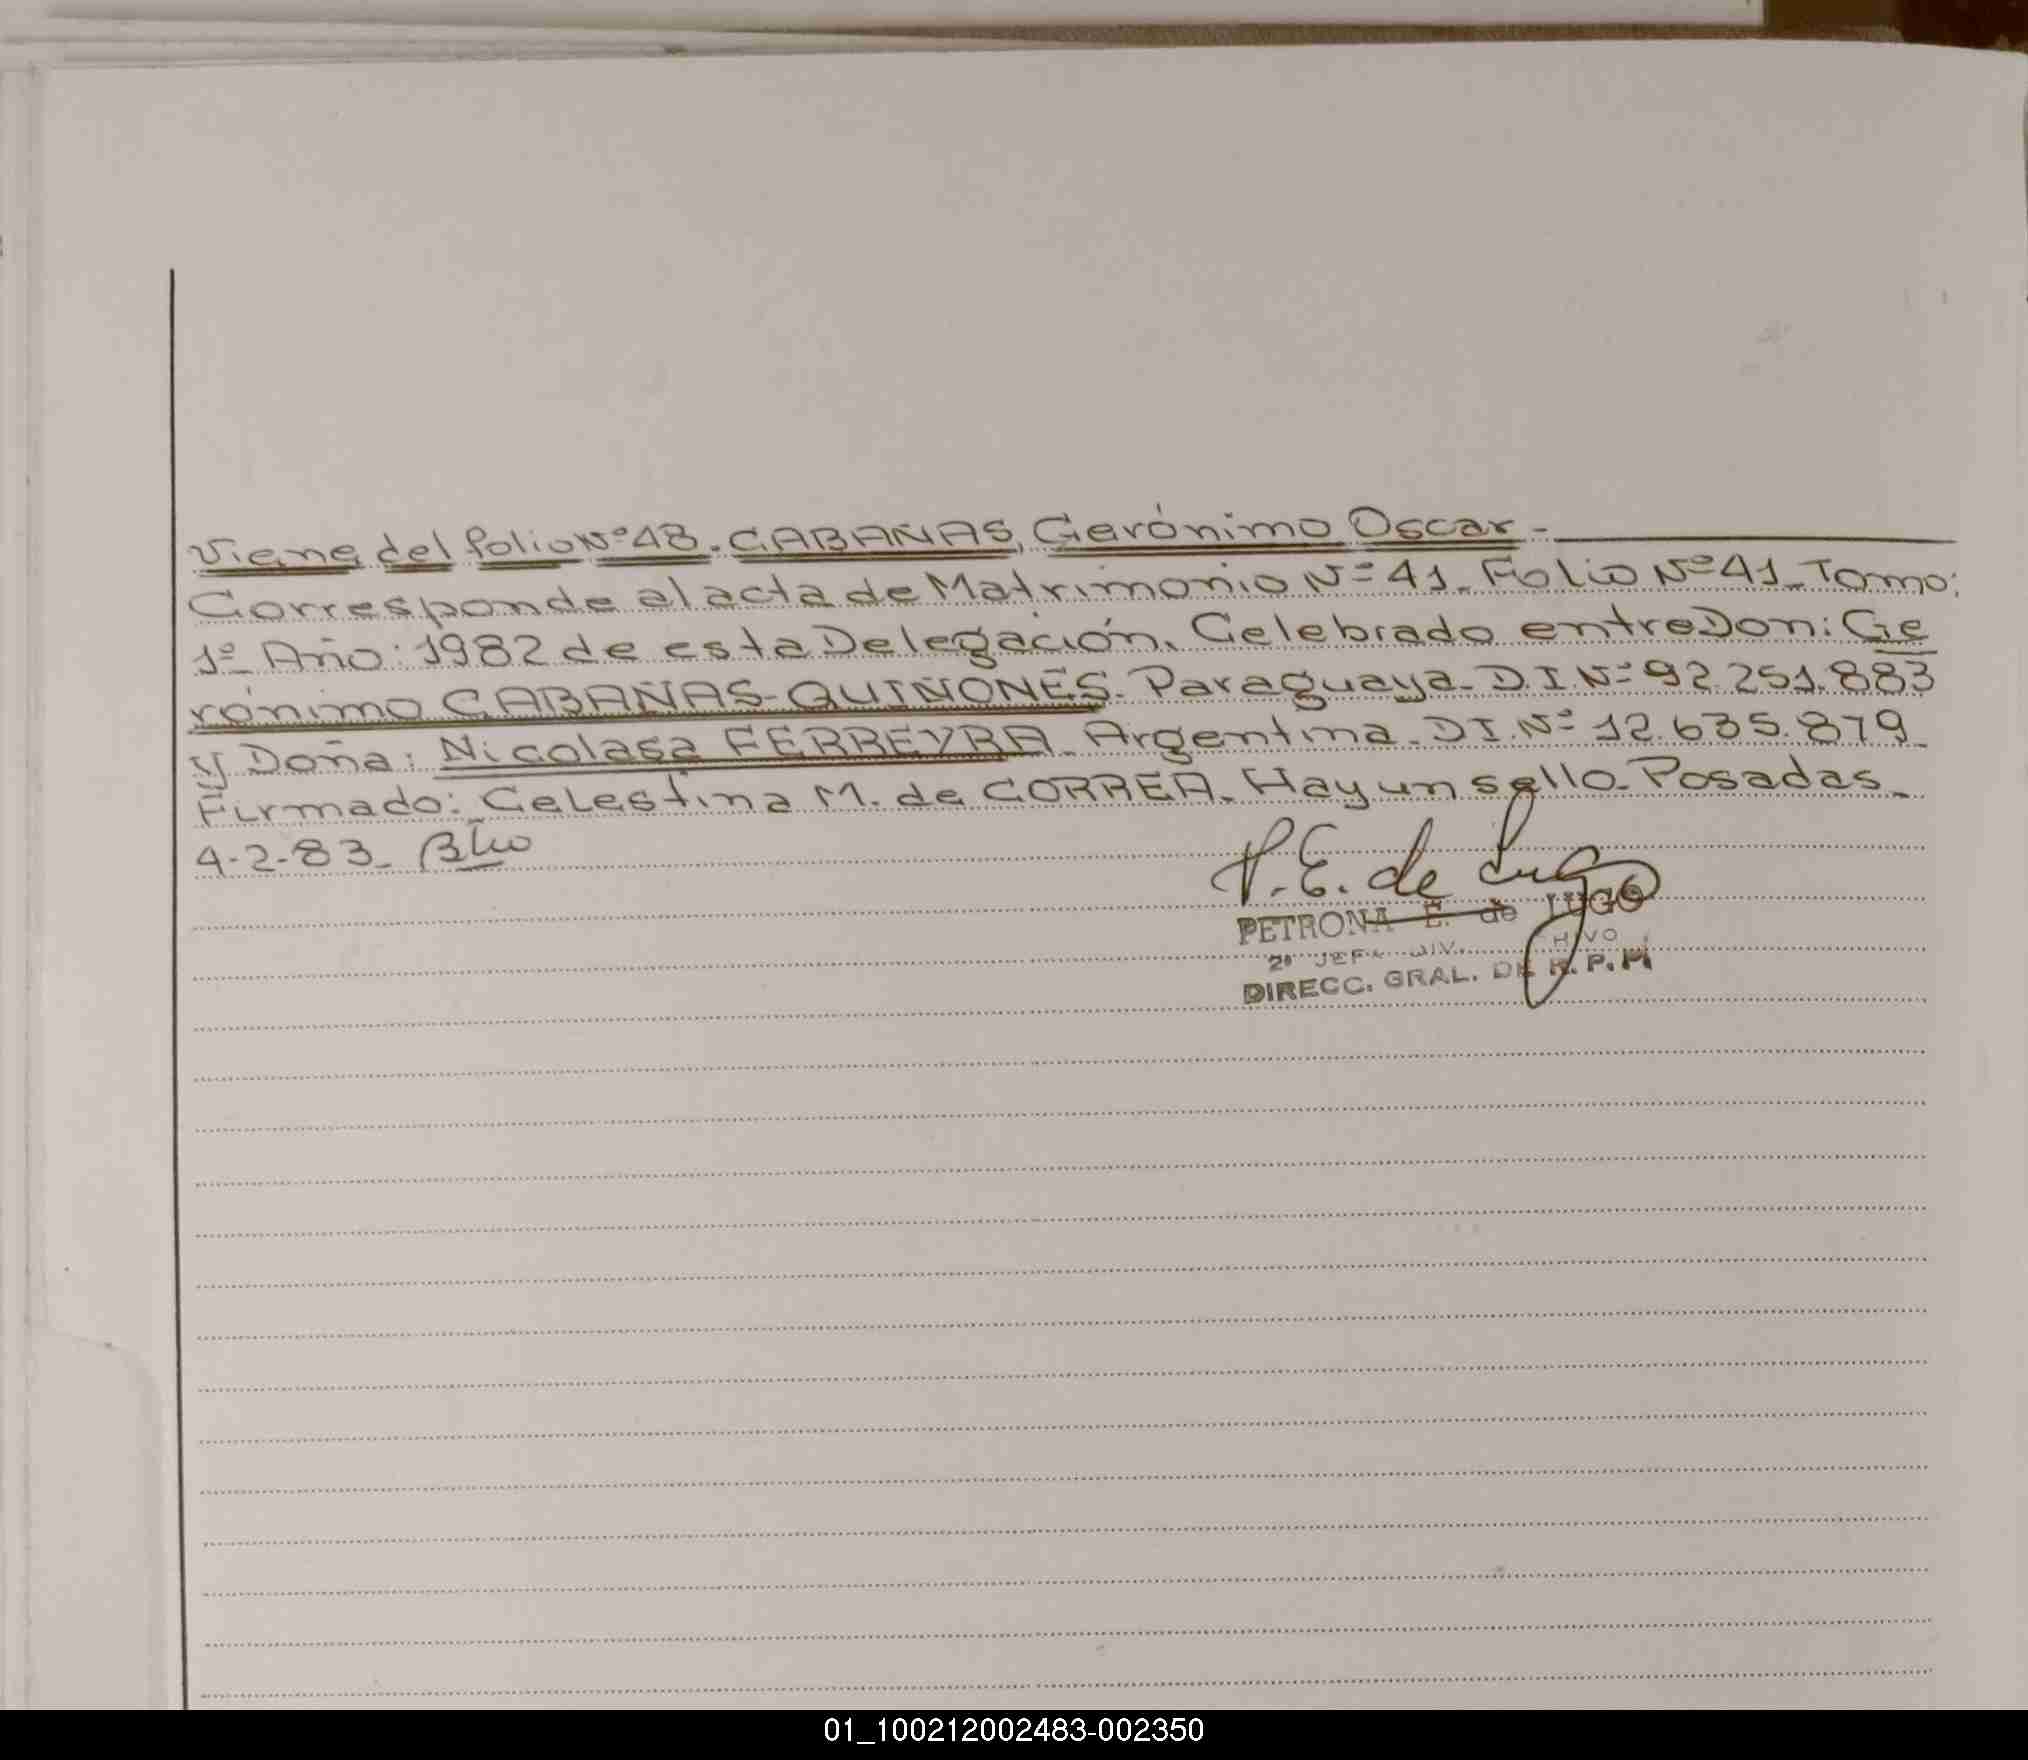 Viene del folio Nº 48. CABAÑAS, Gerónimo Oscar.-
Corresponde al acta de Matrimonio Nº 41. Folio Nº 41. Tomo:
1º Año: 1982 de esta Delegación. Celebrado entre Don: Ge
rónimo CABAÑAS-QUIÑONES. Paraguaya. D.I.Nº 92.251.883
y Doña: Nicolasa FERREYRA. Argentina. D.I.Nº 12.635.879.
Firmado: Celestina M. de CORREA. Hay un sello. Posadas.
4-2-83.
P.E. de Lugo
PETRONA E. de LUGO
2º JEFA DIV.
DIRECC. GRAL. DE R.P.P.
01_100212002483-002350